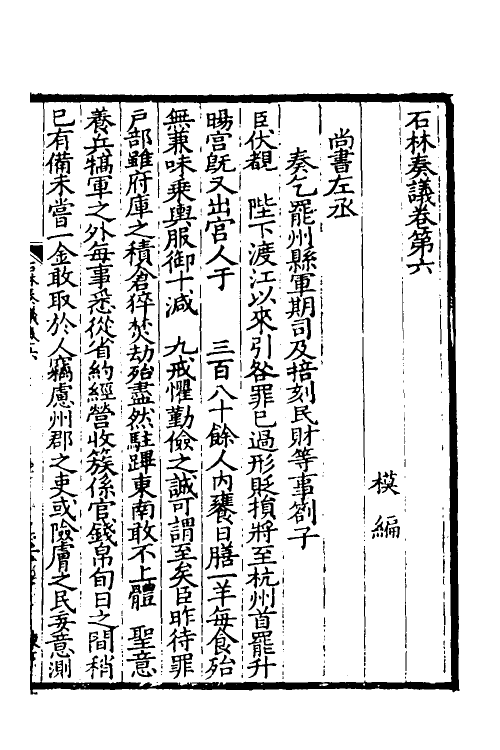 石林奏議卷第六
模編
尚書左丞
奏乞罷州縣軍期司及掊刻民財等事劄子
臣伏覩 陛下渡江以來引咎罪已過形貶損將至杭州首罷升
暘宮旣又出宮人于 三百八十餘人內饔日膳一羊每食殆
無兼味乘輿服御十減 九戒懼勤儉之誠可謂至矣臣昨待罪
戶部雖府庫之積倉猝焚劫殆盡然駐蹕東南敢不上體 聖意
養兵犒軍之外每事悉從省約經營收簇係官錢帛旬日之間稍
已有備未嘗一金敢取於人竊慮州郡之吏或險膚之民妄意測